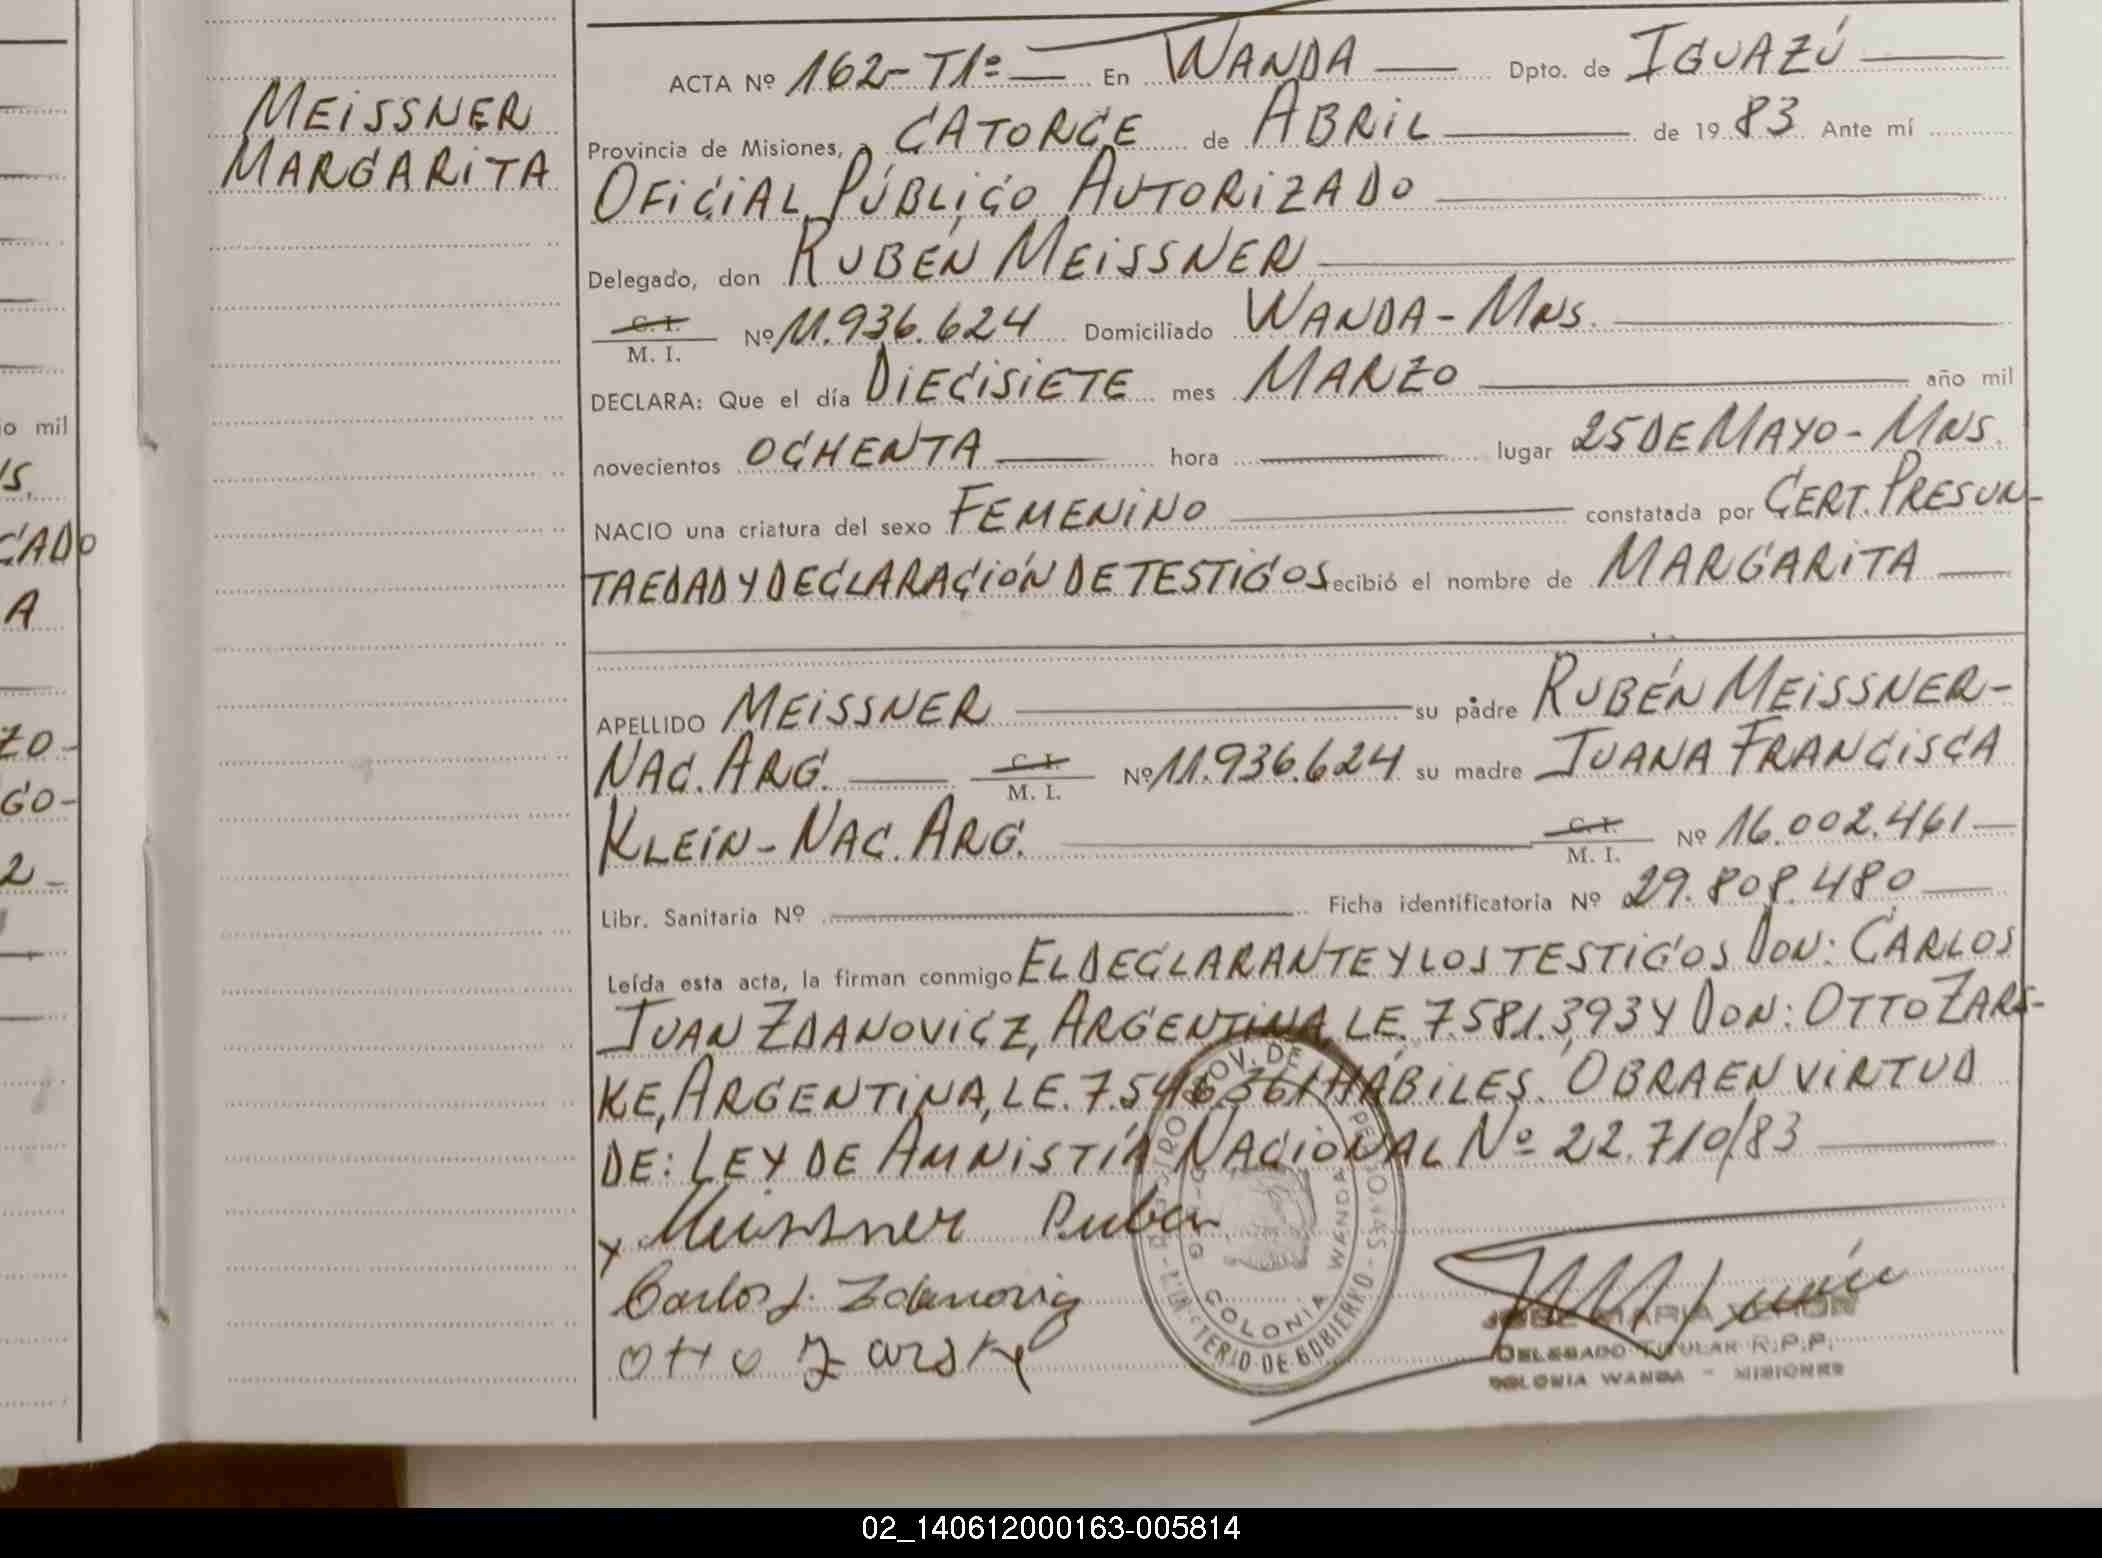 MEISSNER
MARGARITA
ACTA Nº 162-T1º- En WANDA Dpto. de IGUAZÚ
Provincia de Misiones, a CATORCE de ABRIL de 1983 Ante mí
OFICIAL PÚBLICO AUTORIZADO
Delegado, don RUBÉN MEISSNER
C. I.
M. I. Nº 11.936.624 Domiciliado WANDA-MNS.
DECLARA: Que el día DIECISIETE mes MARZO año mil
novecientos OCHENTA hora lugar 25 DE MAYO-MNS.
NACIO una criatura del sexo FEMENINO constatada por CERT. PRESUN-
TA EDAD Y DECLARACIÓN DE TESTIGOS recibió el nombre de MARGARITA
APELLIDO MEISSNER su padre RUBÉN MEISSNER-
NAC. ARG. C. I. M. I. Nº 11.936.624 su madre JUANA FRANCISCA
KLEIN-NAC. ARG. C. I. M. I. Nº 16.002.461
Libr. Sanitaria Nº Ficha identificatoria Nº 29.808.480
Leída esta acta, la firman conmigo EL DECLARANTE Y LOS TESTIGOS DON: CARLOS
JUAN ZDANOVICZ, ARGENTINA, LE. 7.581.393 Y DON: OTTO ZARS-
KE, ARGENTINA, LE. 7.546.361 HÁBILES. OBRA EN VIRTUD
DE: LEY DE AMNISTÍA NACIONAL Nº 22.710/83
x Meissner Ruben
Carlos J. Zdanovicz
Otto Zarske
COLONIA WANDA
MINISTERIO DE GOBIERNO
JOSE MARIA VERON
DELEGADO TITULAR R.P.P.
COLONIA WANDA - MISIONES
o mil
S.
CADO
A
ZO-
GO-
2-
02_140612000163-005814